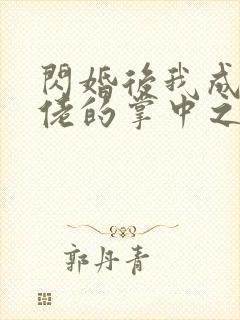 閃婚後我成
佬的掌中之
郭丹青